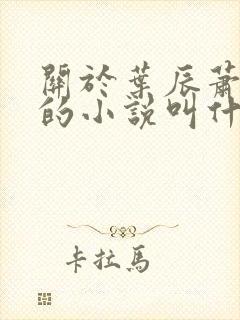 關於葉辰蕭
的小說叫什
卡拉馬